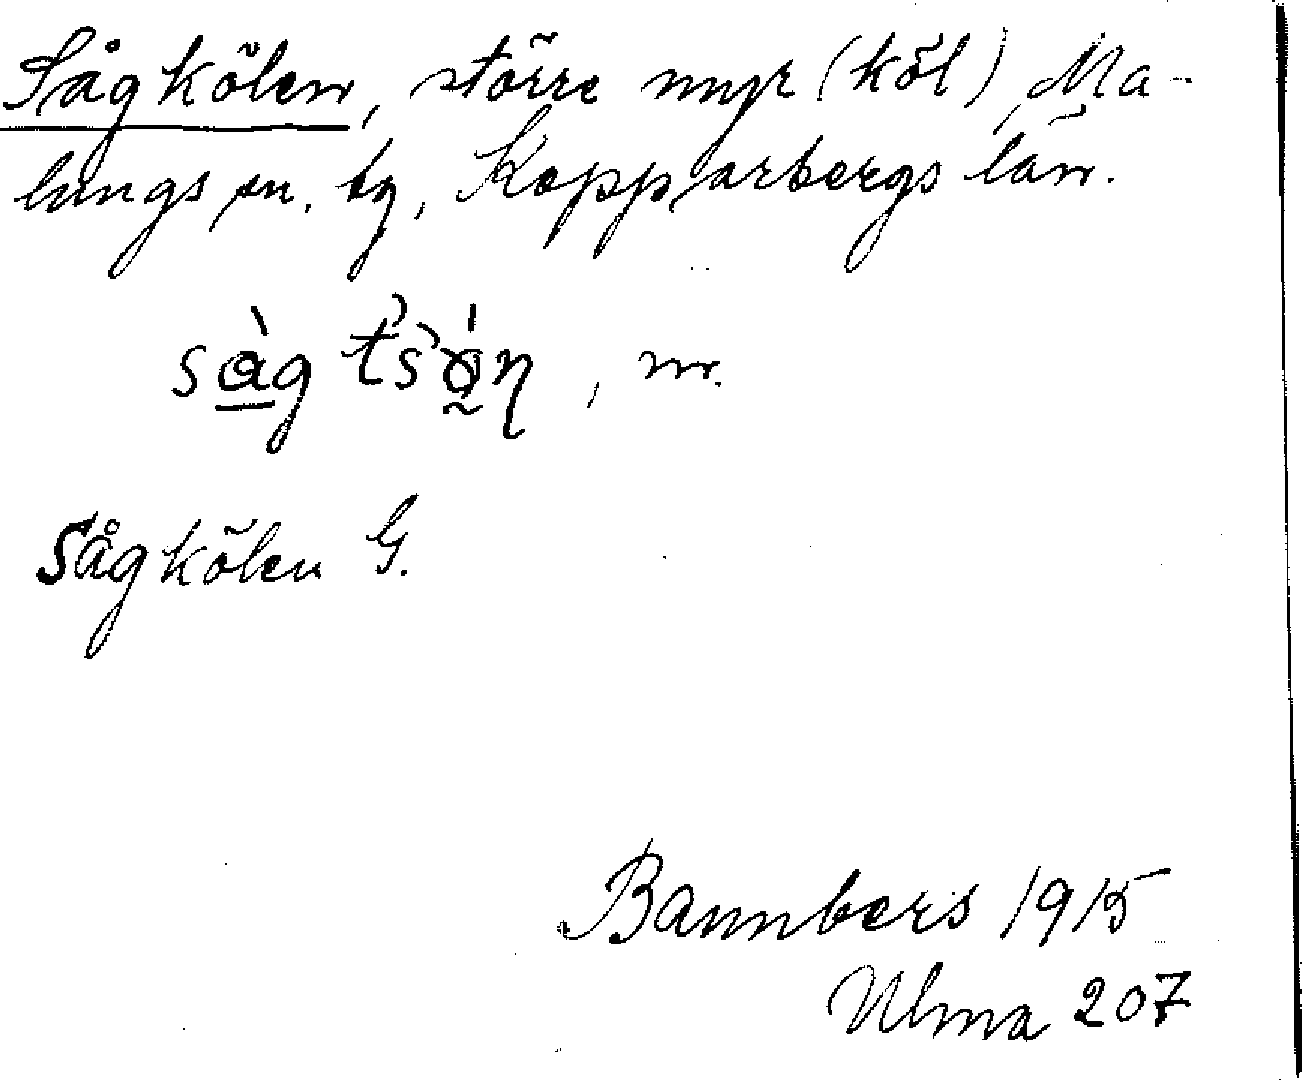 Sågkölen, större myr (köl), Ma-
lungs sn. tg, Kopparbergs län.
, m.
Sågkölen G.
Bannbers 1915
Ulma 207